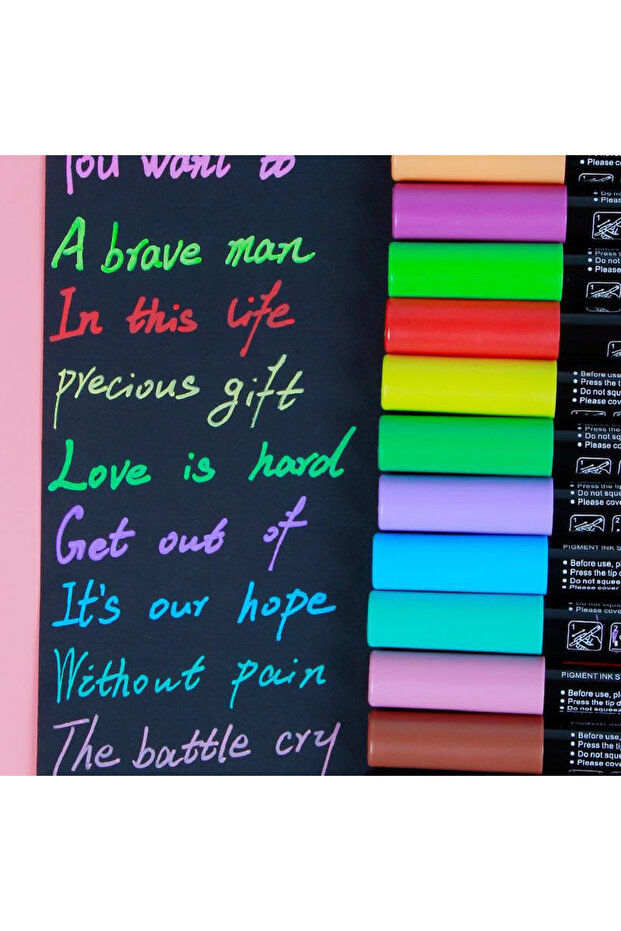 You want to
A brave man
In this life
precious gift
Love is hard
Get out of
It's our hope
Without pain
The battle cry
• Please co
• Pleas
• Do not
• Please
• Before use
• Press the t
• Do not sque
• Please cov
• Do not sq
• Please co
• Press the tip
• Do not squ
• Please cove
PIGMENT INK
• Before use, pl
• Press the tip d
• Do not squee
• Please cover
• Please cover
PIGMENT INK S
• Before use, pl
• Press the tip d
• Do not squeez
• Before use,
• Press the tip
• Do not sque
• Please cove